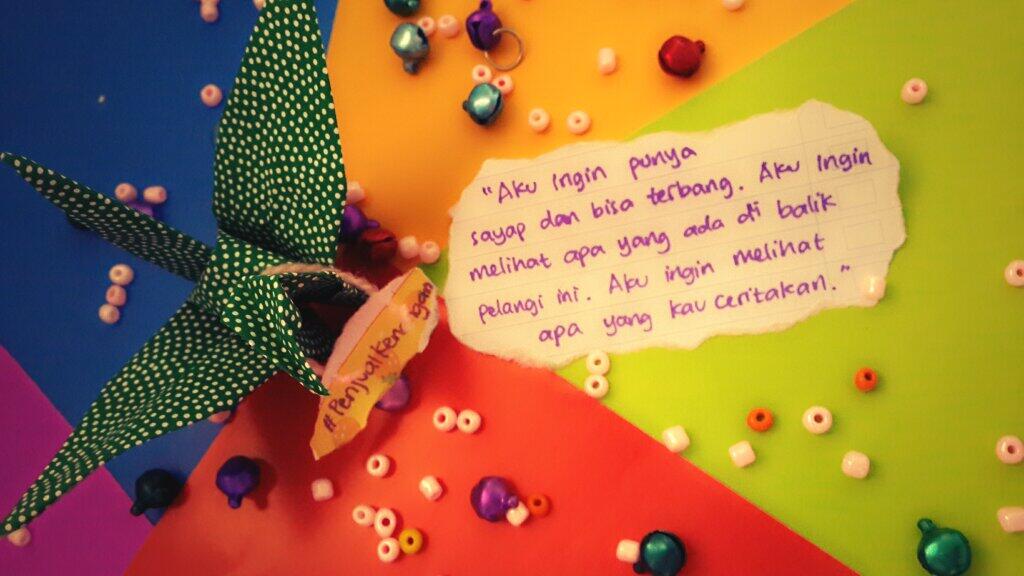 "Aku ingin punya
sayap dan bisa terbang. Aku ingin
melihat apa yang ada di balik
pelangi ini. Aku ingin melihat
apa yang kau ceritakan."